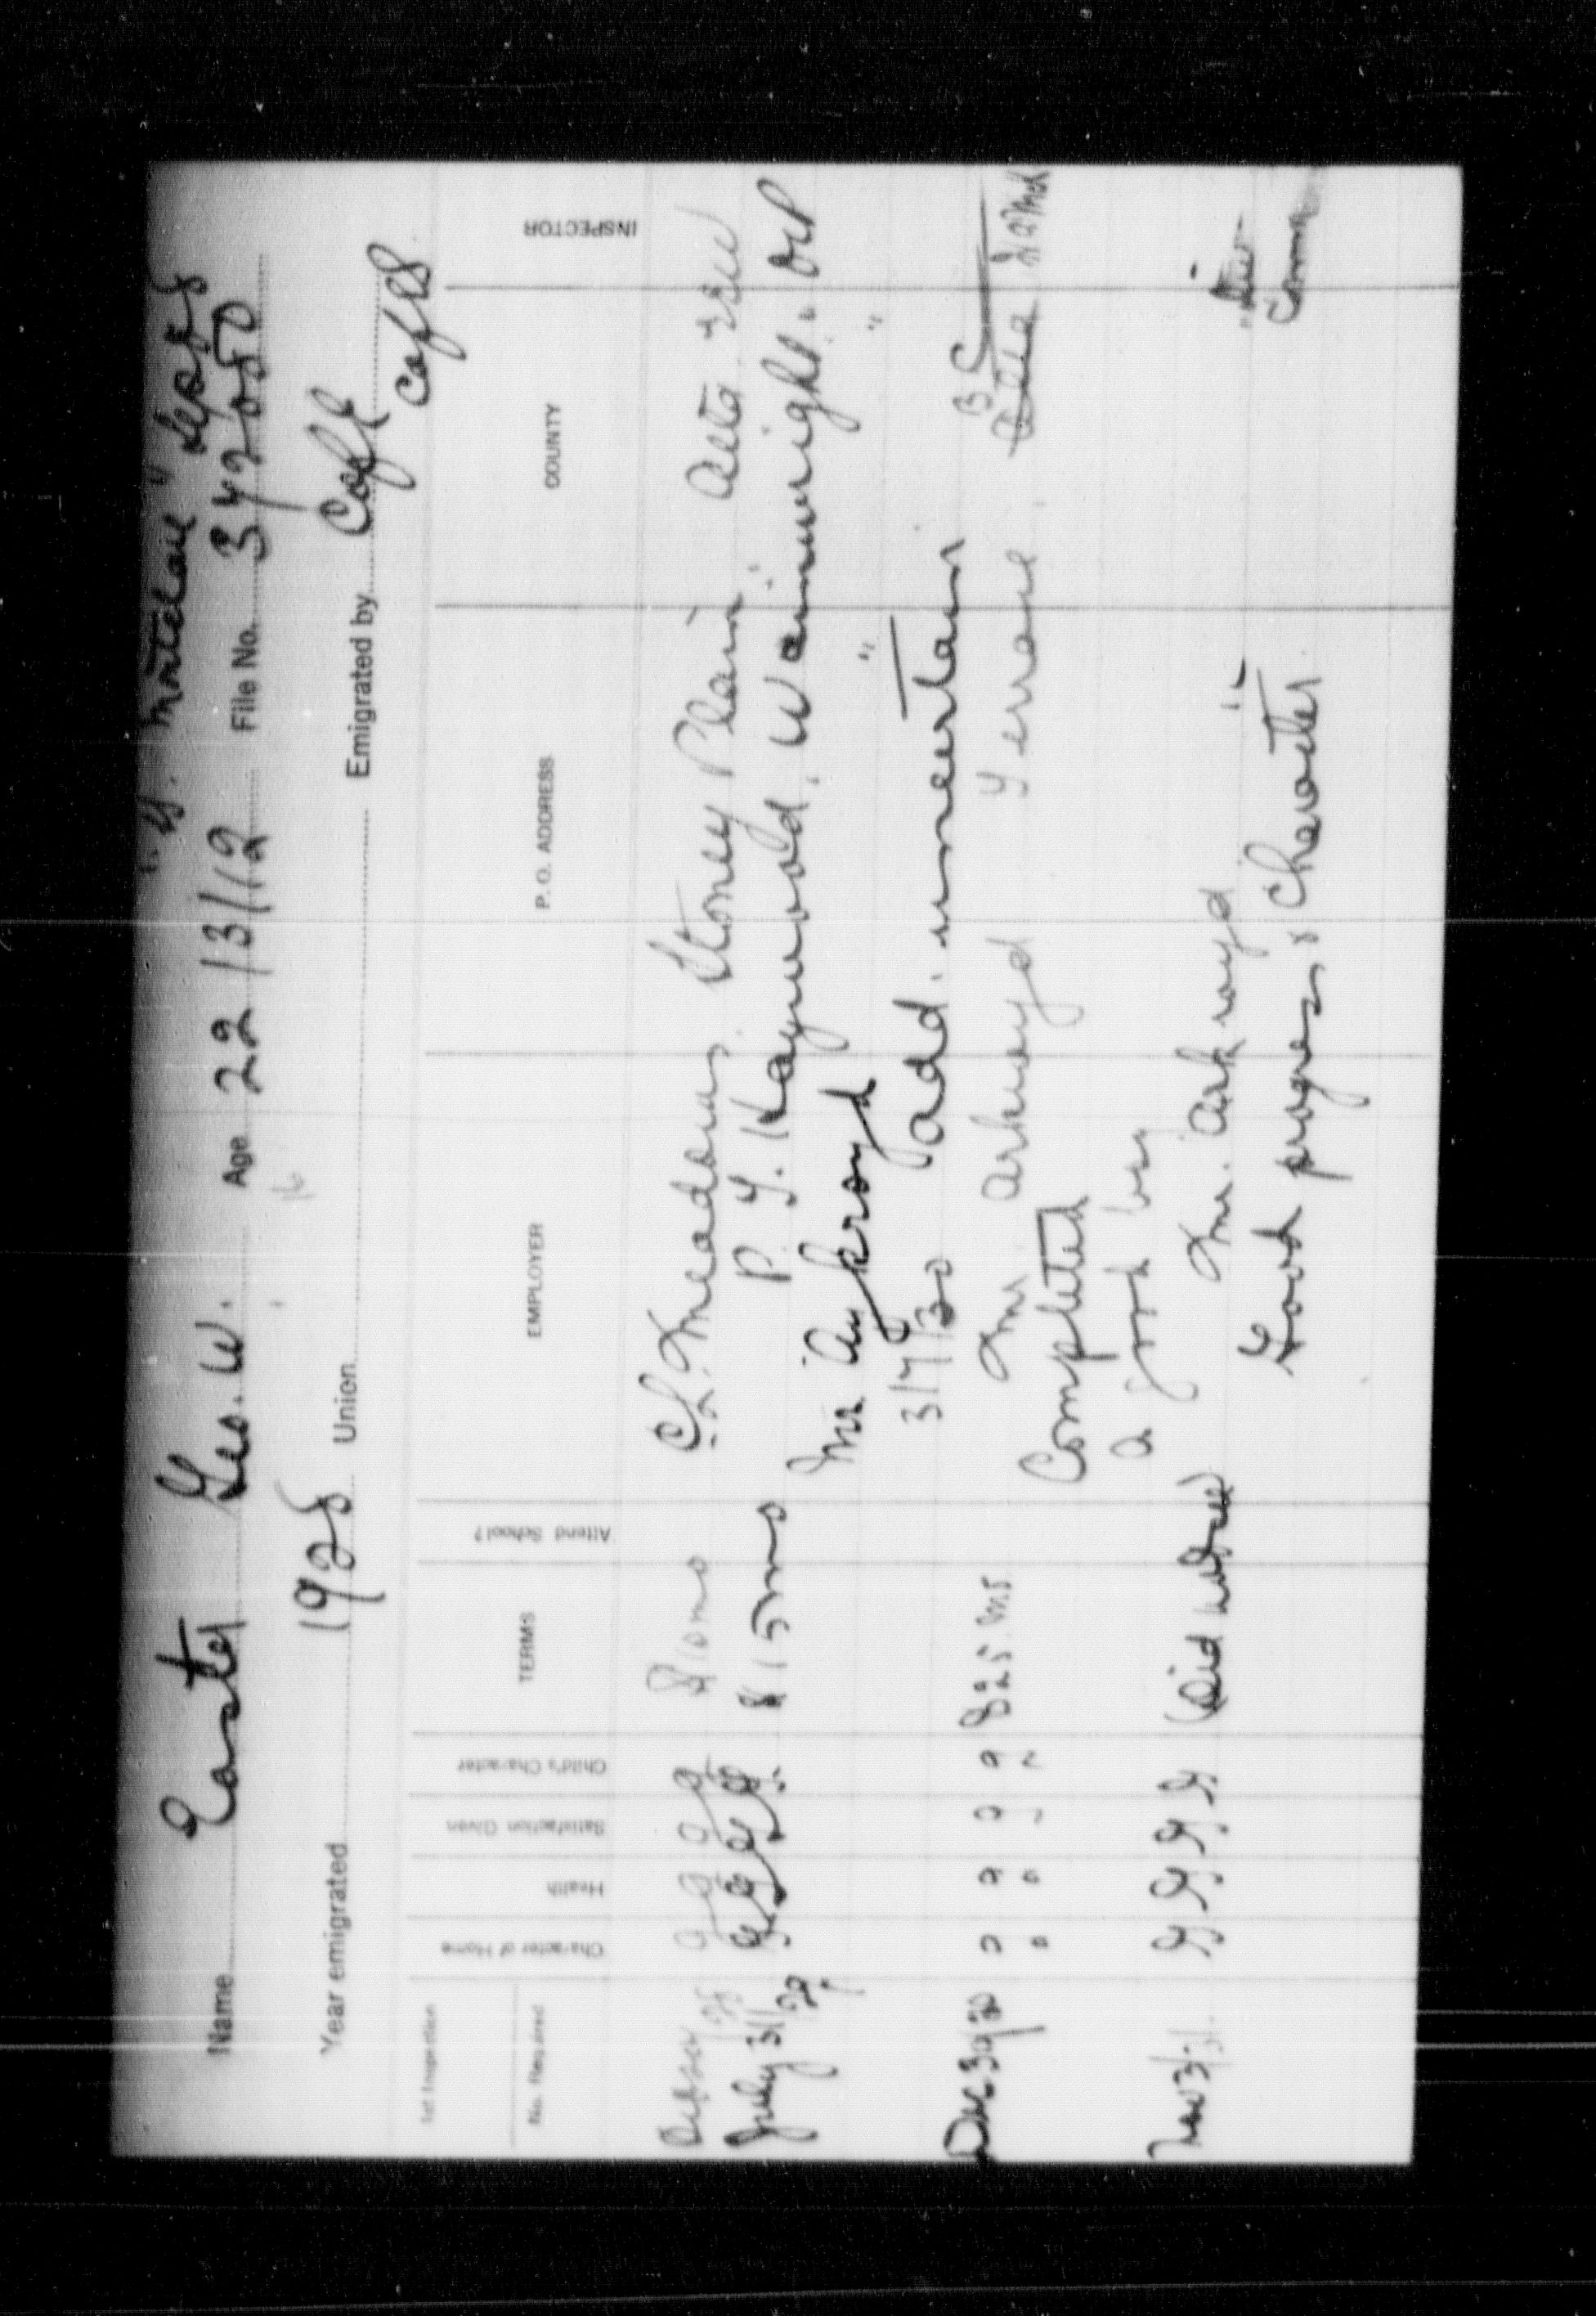 "Montclare" Sep 28
Name Easter Geo. W. Age 22/3/12 File No. 372080
Year emigrated 1928 Union Emigrated by C of E
C of E S
1st Inspection
No. Required
Character of Home
Health
Satisfaction Given
Child's Character
TERMS
Attend School?
EMPLOYER
P. O. ADDRESS
COUNTY
INSPECTOR
/28 g g g g $10 mo C. L. Meadows Stoney Plain Alta
July 31/29 g g g g $15 mo P. Y. Haywood, Wainwright "
Mr Ackroyd " "
3/7/30 add. uncertain
Dec 30/30 g g g g $25 ms Mr. Arkroyd Yerrane Alta BC
Completed
a good boy
Nov 3/31 g g g g (Did not see) Mr. Arkroyd " "
Good progress & character